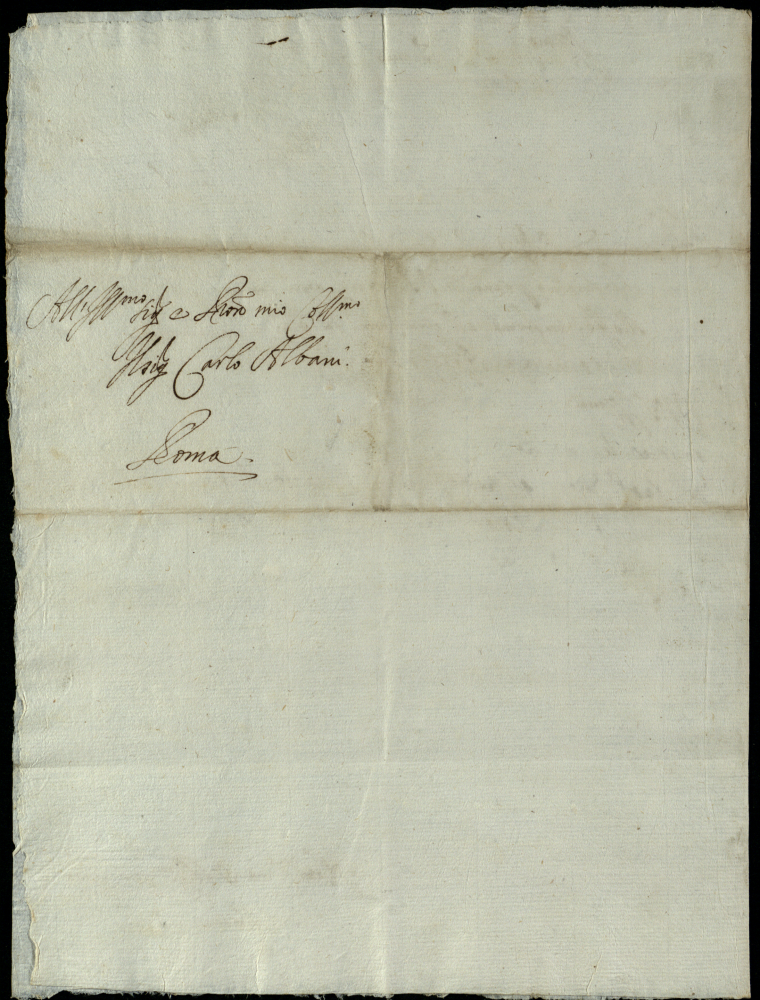 All Ill.mo Sig.r e P̃ron mio Coll.mo
Il Sig.r Carlo Albani.
Roma.